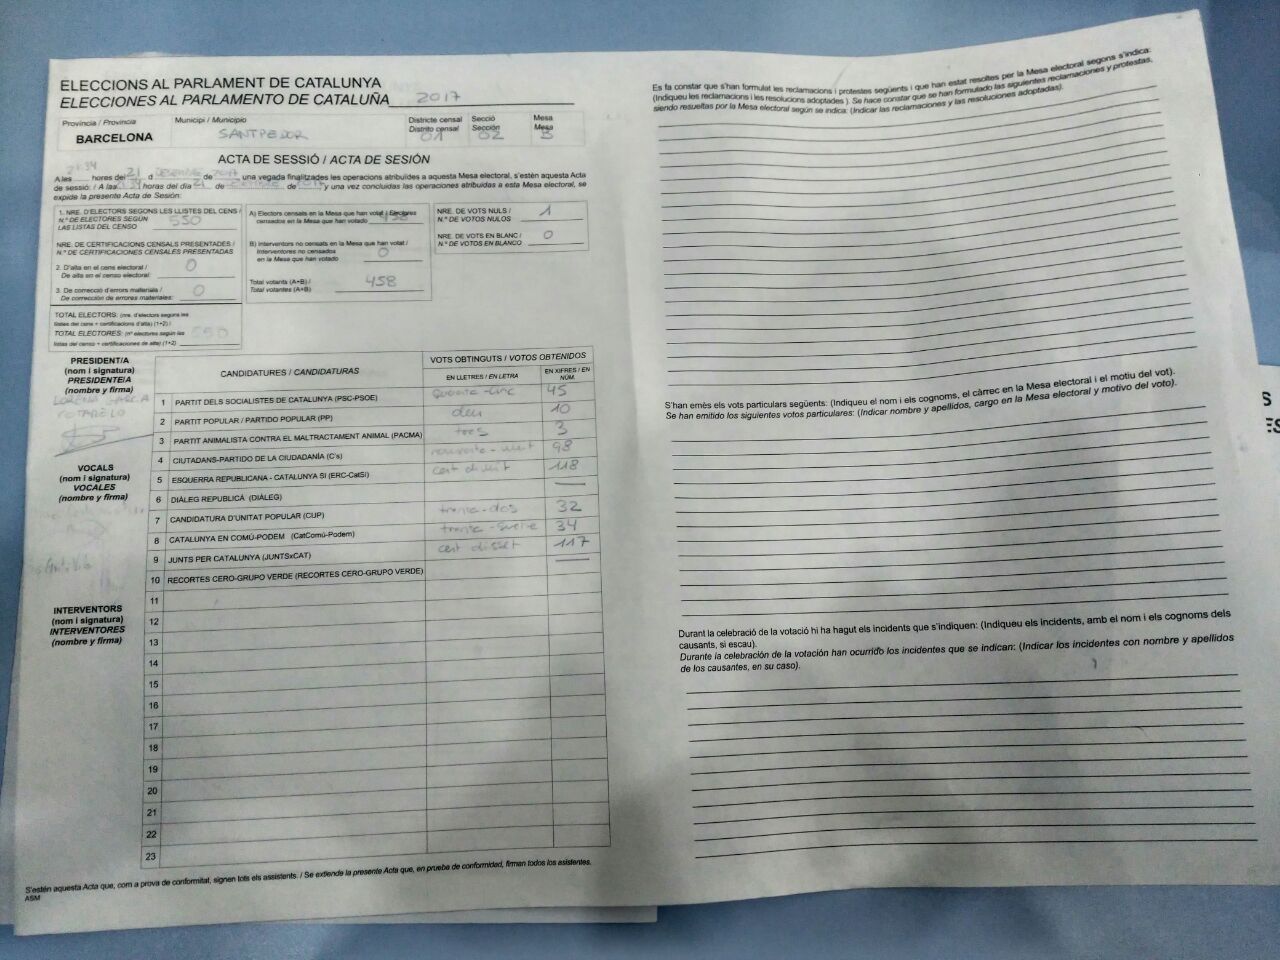 ELECCIONS AL PARLAMENT DE CATALUNYA
ELECCIONES AL PARLAMENTO DE CATALUÑA 2017
Província / Provincia
BARCELONA
Municipi / Municipio
SANTPEDOR
Districte censal
Distrito censal
01
Secció
Sección
02
Mesa
Mesa
B
ACTA DE SESSIÓ / ACTA DE SESIÓN
A les 21:34 hores del 21 d de 2017 una vegada finalitzades les operacions atribuïdes a aquesta Mesa electoral, s'estén aquesta Acta
de sessió: / A las 21:34 horas del día 21 de de 2017 y una vez concluidas las operaciones atribuidas a esta Mesa electoral, se
expide la presente Acta de Sesión:
1. NRE. D'ELECTORS SEGONS LES LLISTES DEL CENS /
N.º DE ELECTORES SEGÚN
LAS LISTAS DEL CENSO 550
NRE. DE CERTIFICACIONS CENSALS PRESENTADES /
N.º DE CERTIFICACIONES CENSALES PRESENTADAS
2. D'alta en el cens electoral /
De alta en el censo electoral: 0
3. De correcció d'errors materials /
De corrección de errores materiales: 0
TOTAL ELECTORS: (nre. d'electors segons les
llistes del cens + certificacions d'alta) (1+2) /
TOTAL ELECTORES: (nº electores según las
listas del censo + certificaciones de alta) (1+2) 550
A) Electors censats en la Mesa que han votat / Electores
censados en la Mesa que han votado 458
B) Interventors no censats en la Mesa que han votat /
Interventores no censados
en la Mesa que han votado 0
Total votants (A+B) /
Total votantes (A+B) 458
NRE. DE VOTS NULS /
N.º DE VOTOS NULOS 1
NRE. DE VOTS EN BLANC /
N.º DE VOTOS EN BLANCO 0
PRESIDENT/A
(nom i signatura)
PRESIDENTE/A
(nombre y firma)
LORENA
VOCALS
(nom i signatura)
VOCALES
(nombre y firma)
INTERVENTORS
(nom i signatura)
INTERVENTORES
(nombre y firma)
CANDIDATURES / CANDIDATURAS
VOTS OBTINGUTS / VOTOS OBTENIDOS
EN LLETRES / EN LETRA
EN XIFRES / EN NÚM.
1 PARTIT DELS SOCIALISTES DE CATALUNYA (PSC-PSOE) quaranta-cinc 45
2 PARTIT POPULAR / PARTIDO POPULAR (PP) deu 10
3 PARTIT ANIMALISTA CONTRA EL MALTRACTAMENT ANIMAL (PACMA) tres 3
4 CIUTADANS-PARTIDO DE LA CIUDADANÍA (C's) noranta-vuit 98
5 ESQUERRA REPUBLICANA - CATALUNYA SÍ (ERC-CatSí) cent divuit 118
6 DIÀLEG REPUBLICÀ (DIÀLEG) —
7 CANDIDATURA D'UNITAT POPULAR (CUP) trenta-dos 32
8 CATALUNYA EN COMÚ-PODEM (CatComú-Podem) trenta-quatre 34
9 JUNTS PER CATALUNYA (JUNTSxCAT) cent disset 117
10 RECORTES CERO-GRUPO VERDE (RECORTES CERO-GRUPO VERDE) —
11
12
13
14
15
16
17
18
19
20
21
22
23
S'estén aquesta Acta que, com a prova de conformitat, signen tots els assistents. / Se extiende la presente Acta que, en prueba de conformidad, firman todos los asistentes.
ASM
Es fa constar que s'han formulat les reclamacions i protestes següents i que han estat resoltes per la Mesa electoral segons s'indica:
(Indiqueu les reclamacions i les resolucions adoptades ). Se hace constar que se han formulado las siguientes reclamaciones y protestas,
siendo resueltas por la Mesa electoral según se indica: (Indicar las reclamaciones y las resoluciones adoptadas).
S'han emès els vots particulars següents: (Indiqueu el nom i els cognoms, el càrrec en la Mesa electoral i el motiu del vot).
Se han emitido los siguientes votos particulares: (Indicar nombre y apellidos, cargo en la Mesa electoral y motivo del voto).
Durant la celebració de la votació hi ha hagut els incidents que s'indiquen: (Indiqueu els incidents, amb el nom i els cognoms dels
causants, si escau).
Durante la celebración de la votación han ocurrido los incidentes que se indican: (Indicar los incidentes con nombre y apellidos
de los causantes, en su caso).